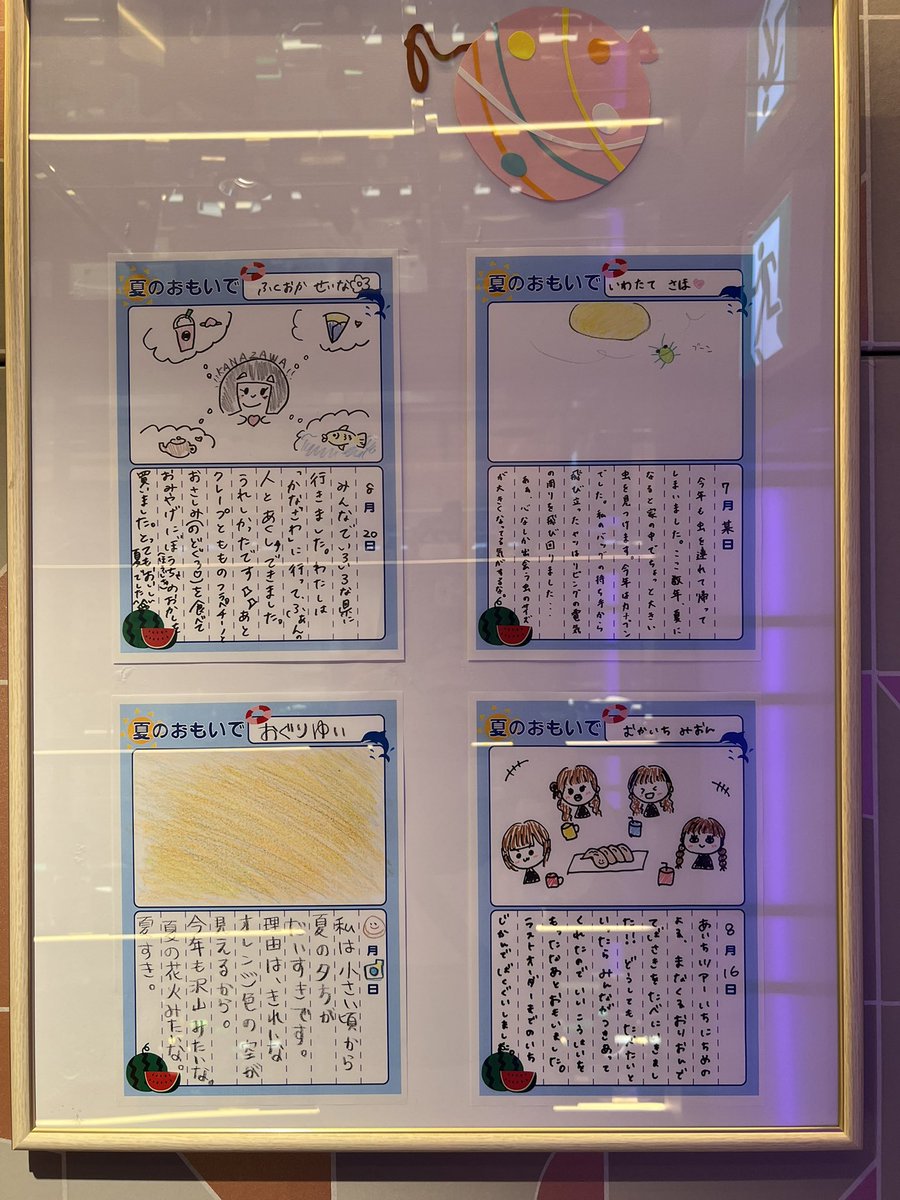 夏のおもいで
ふくおか せいな
KANAZAWA
8月20日
みんなでいろいろな県に
行きました。わたしは
「かなざわ」に行ってふぁんの
人とあくしゅできました。
うれしかったです あと
クレープともものフラペチーノと
おさしみ(のどぐろ♡)を食べて
おみやげにぼうちゃのおかしを
買いました。とってもおいしい
夏でした
夏のおもいで
いわたて さほ
ブーン
7月某日
今年も虫を連れて帰って
しまいました。ここ数年、夏に
なると家の中でちょっと大きい
虫を見つけます。今年はカナブン
でした。私のバッグの持ち手から
飛び立ったヤツはリビングの電気
の周りを飛び回りました...
あぁ、心なしか出会う虫のサイズ
が大きくなってる気がするな。
夏のおもいで
おぐりゆい
月日
私は小さい頃から
夏の夕方が
だいすきです。
理由は きれいな
オレンジ色の空が
見えるから。
今年も沢山みたいな。
夏の花火みたいな。
夏すき。
夏のおもいで
むかいち みおん
8月16日
あいちツアー いちにちめの
よる、まなくるおりおんで
てばさきをたべにいきまし
た!! どうしてもたべたいと
いったらみんながつきあって
くれたので、いいこうはいを
もったなぁとおもいました。
ラストオーダーまでのいち
じかんでばくぐいしました。